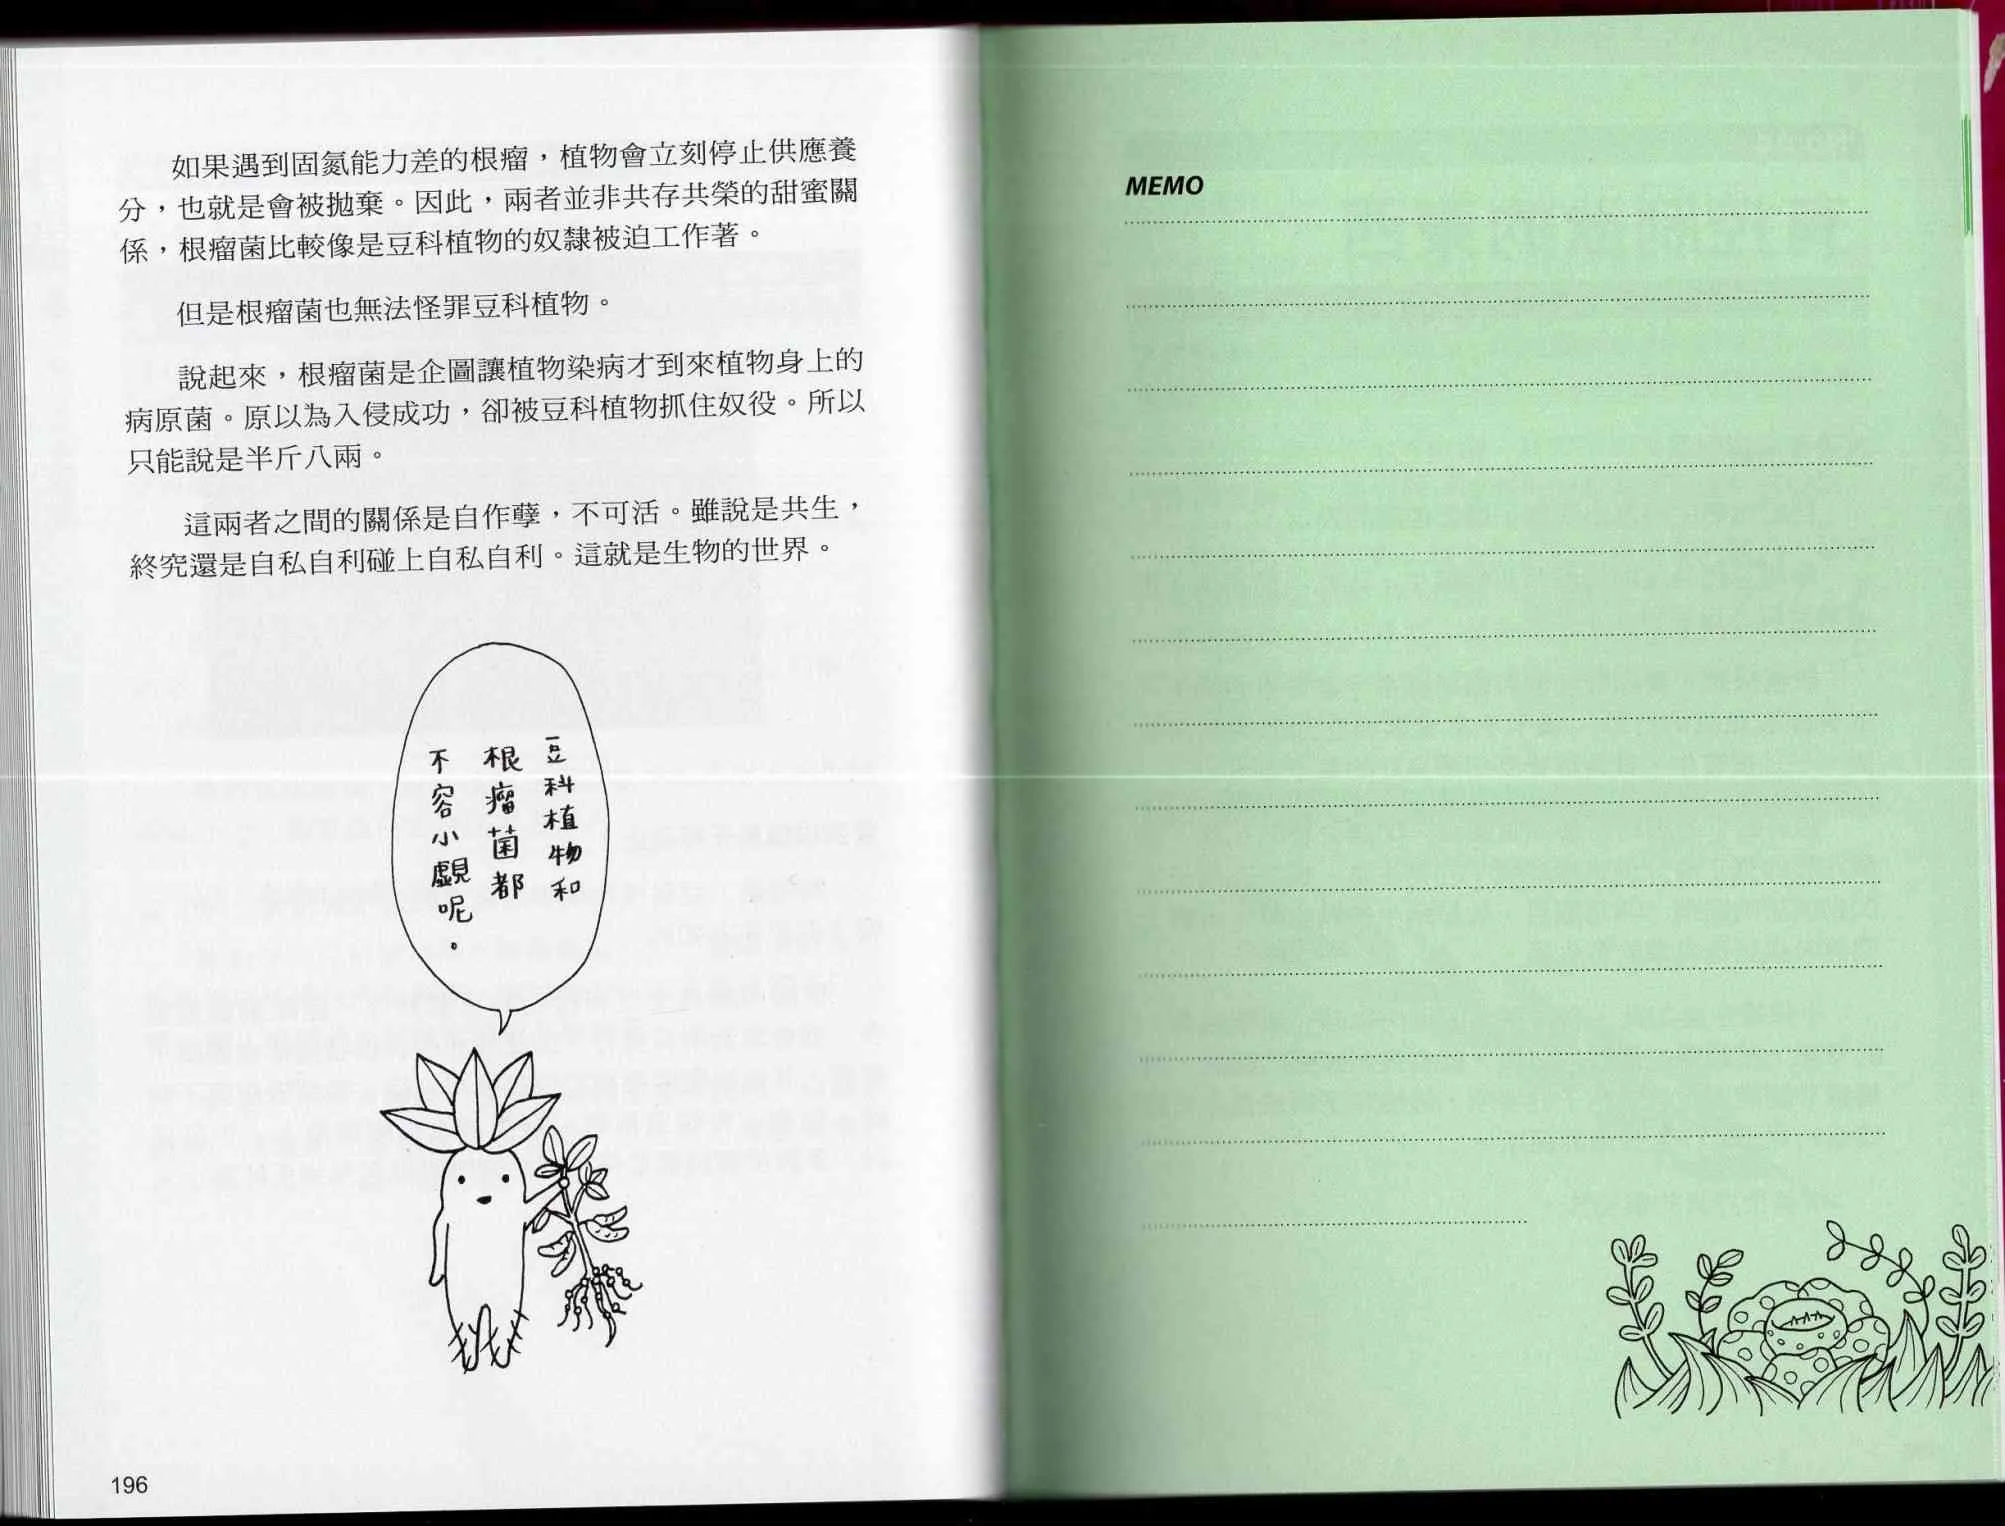 如果遇到固氮能力差的根瘤，植物會立刻停止供應養
分，也就是會被拋棄。因此，兩者並非共存共榮的甜蜜關
係，根瘤菌比較像是豆科植物的奴隸被迫工作著。
但是根瘤菌也無法怪罪豆科植物。
說起來，根瘤菌是企圖讓植物染病才到來植物身上的
病原菌。原以為入侵成功，卻被豆科植物抓住奴役。所以
只能說是半斤八兩。
這兩者之間的關係是自作孽，不可活。雖說是共生，
終究還是自私自利碰上自私自利。這就是生物的世界。
豆科植物和
根瘤菌都
不容小覷呢。
196
MEMO